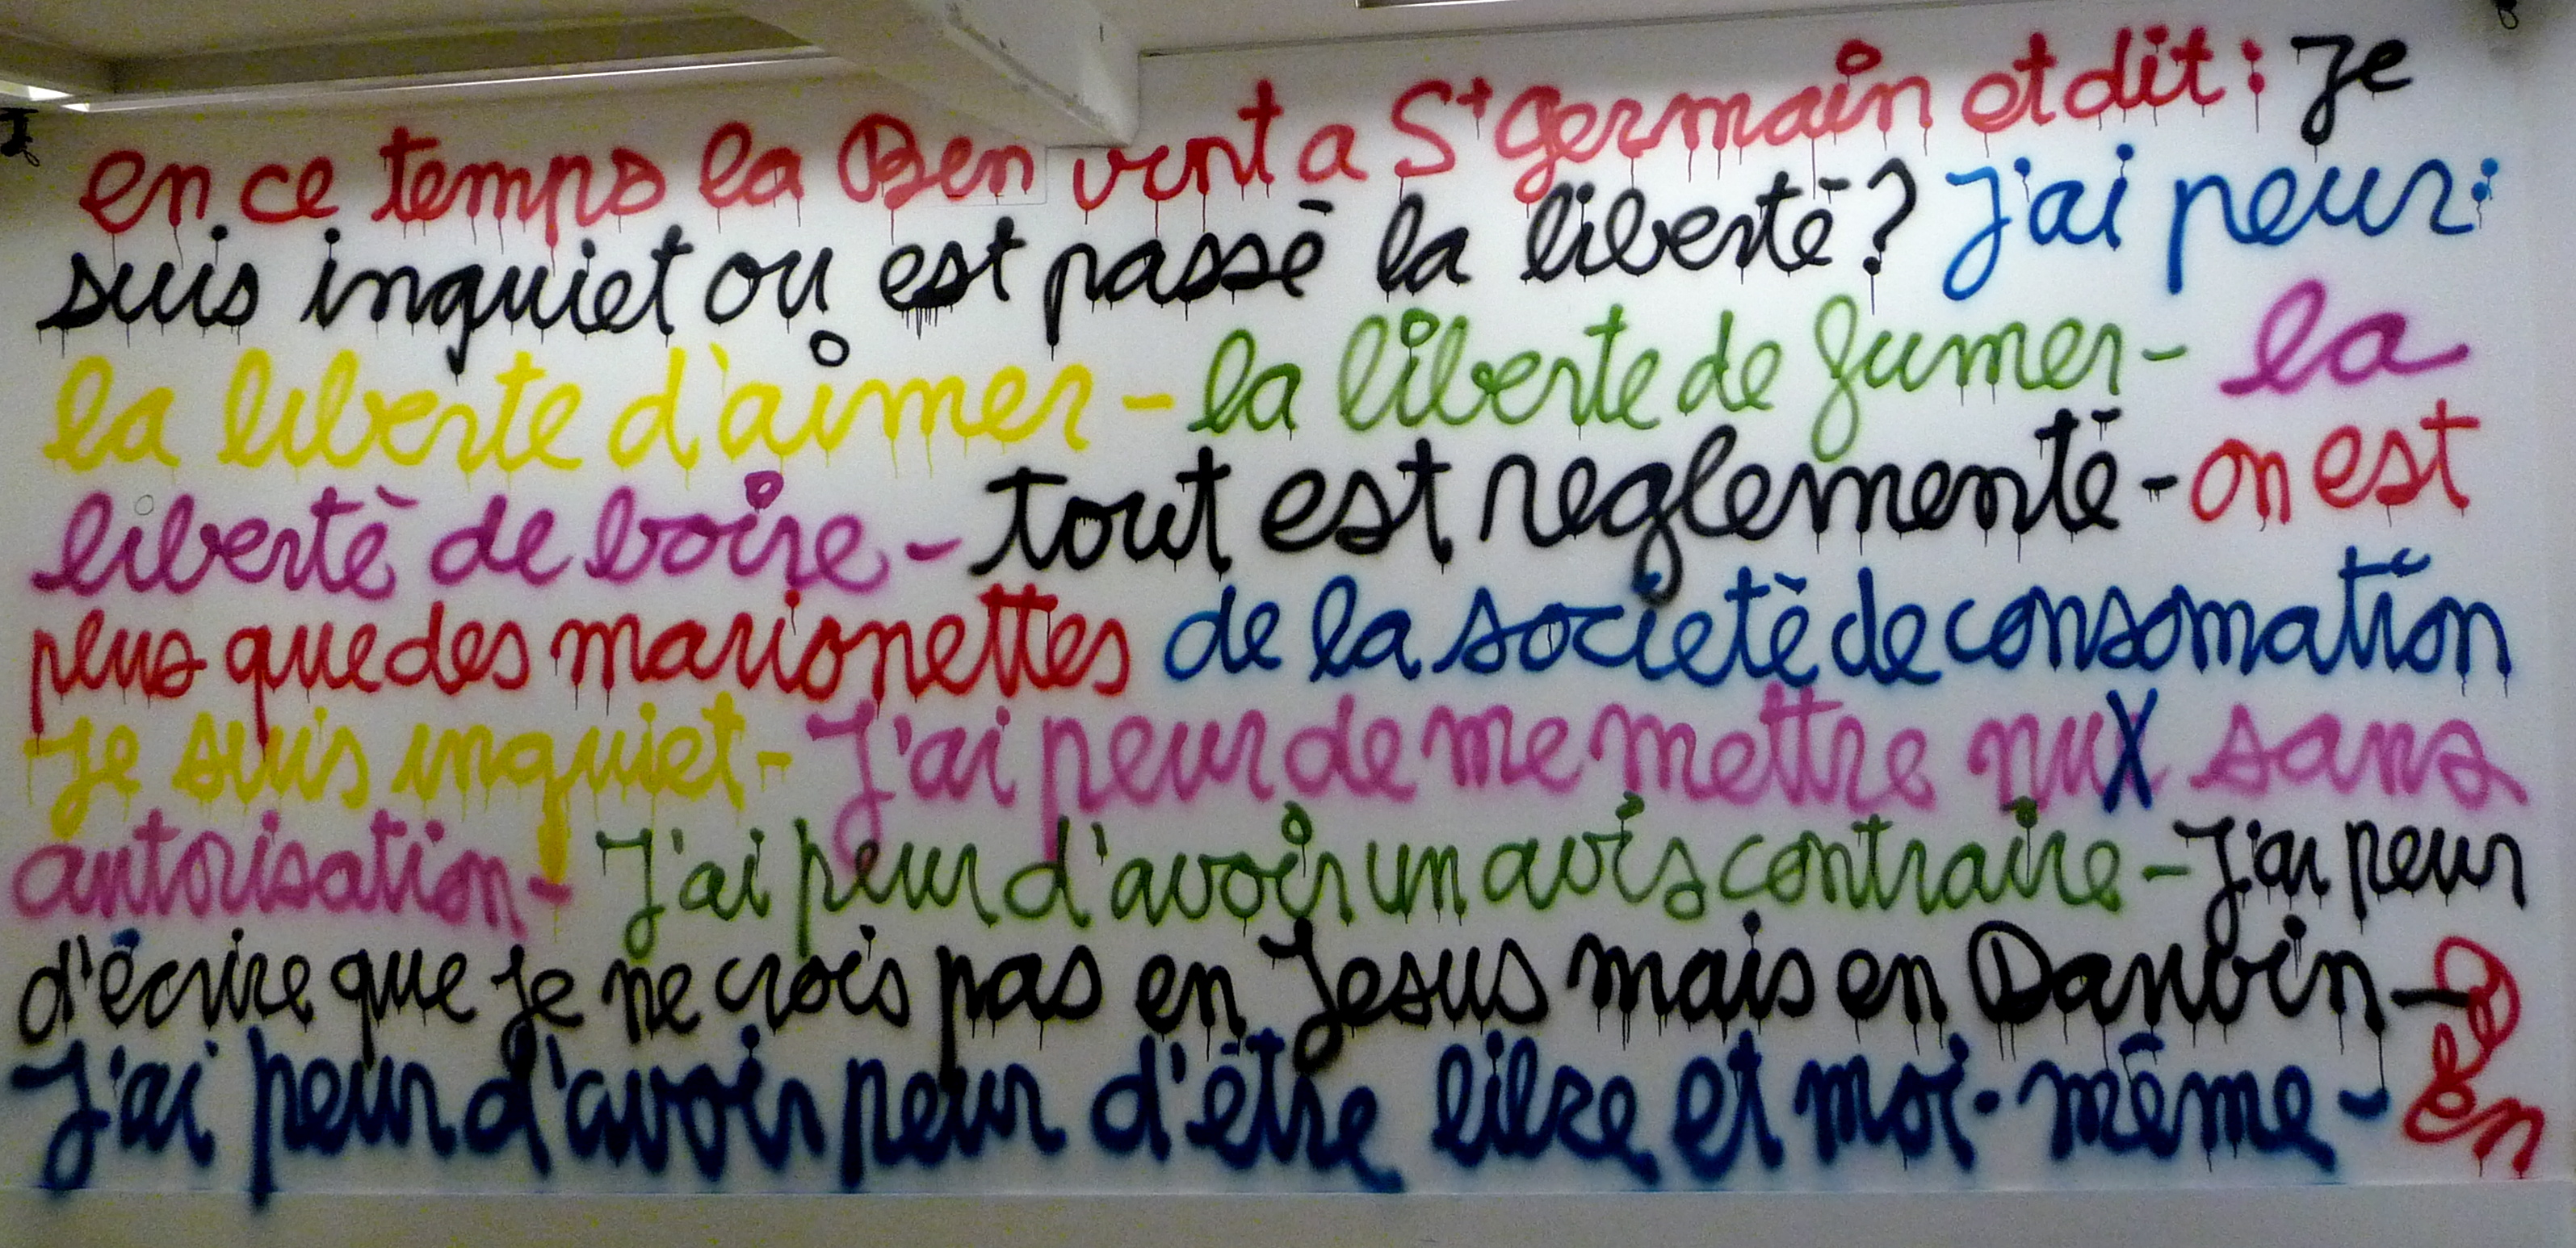 en ce temps la Ben vint a St germain et dit : Je
suis inquiet ou est passé la liberté ? J'ai peur :
la liberte d'aimer - la liberte de fumer - la
liberté de boire - tout est reglementé - on est
plus que des marionettes de la societé de consomation
Je suis inquiet - J'ai peur de me mettre nuX sans
autorisation - J'ai peur d'avoir un avis contraire - J'ai peur
d'écrire que je ne crois pas en Jesus mais en Danwin -
J'ai peur d'avoir peur d'être libre et moi-même - Ben